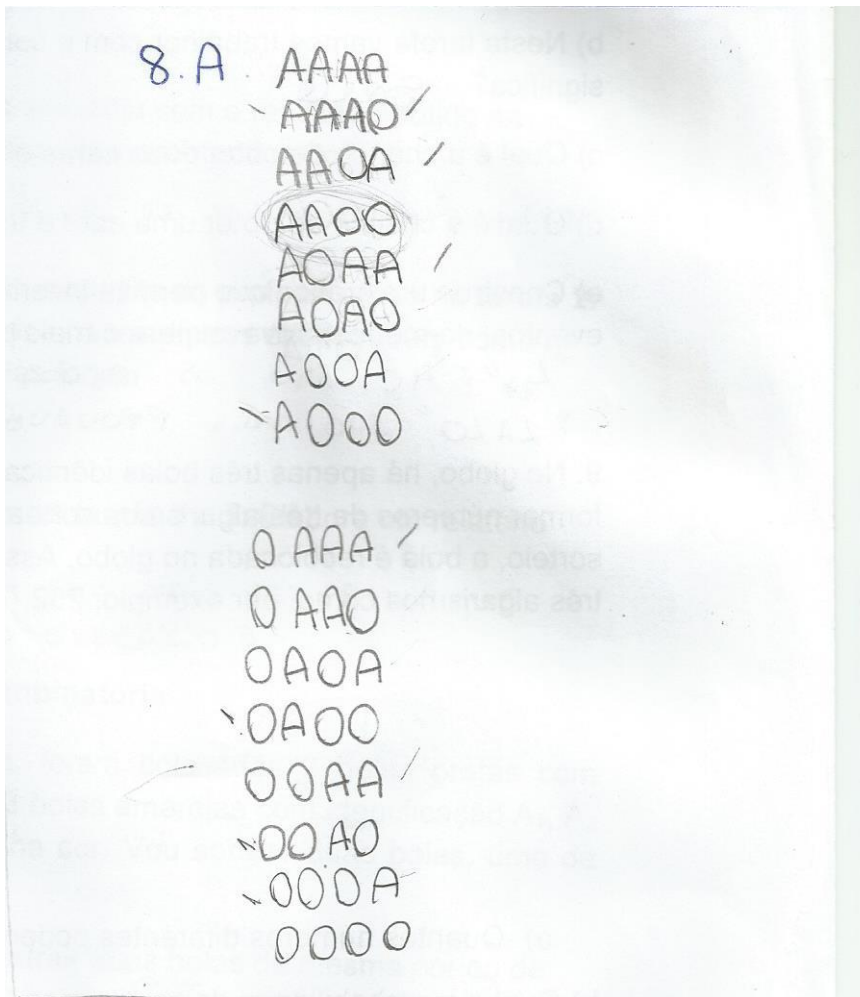 8. A. AAAA
AAAO
AAOA
AAOO
AOAA
AOAO
AOOA
AOOO
OAAA
OAAO
OAOA
OAOO
OOAA
OOAO
OOOA
OOOO